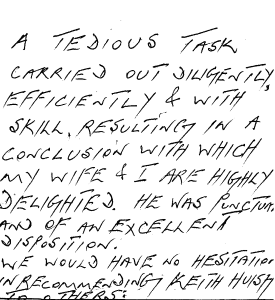 A TEDIOUS TASK
CARRIED OUT DILIGENTLY,
EFFICIENTLY & WITH
SKILL, RESULTING IN A
CONCLUSION WITH WHICH
MY WIFE & I ARE HIGHLY
DELIGHTED. HE WAS PUNCTUA
AND OF AN EXCELLENT
DISPOSITION.
WE WOULD HAVE NO HESITATION
IN RECOMMENDING KEITH HUISH
TO OTHERS.